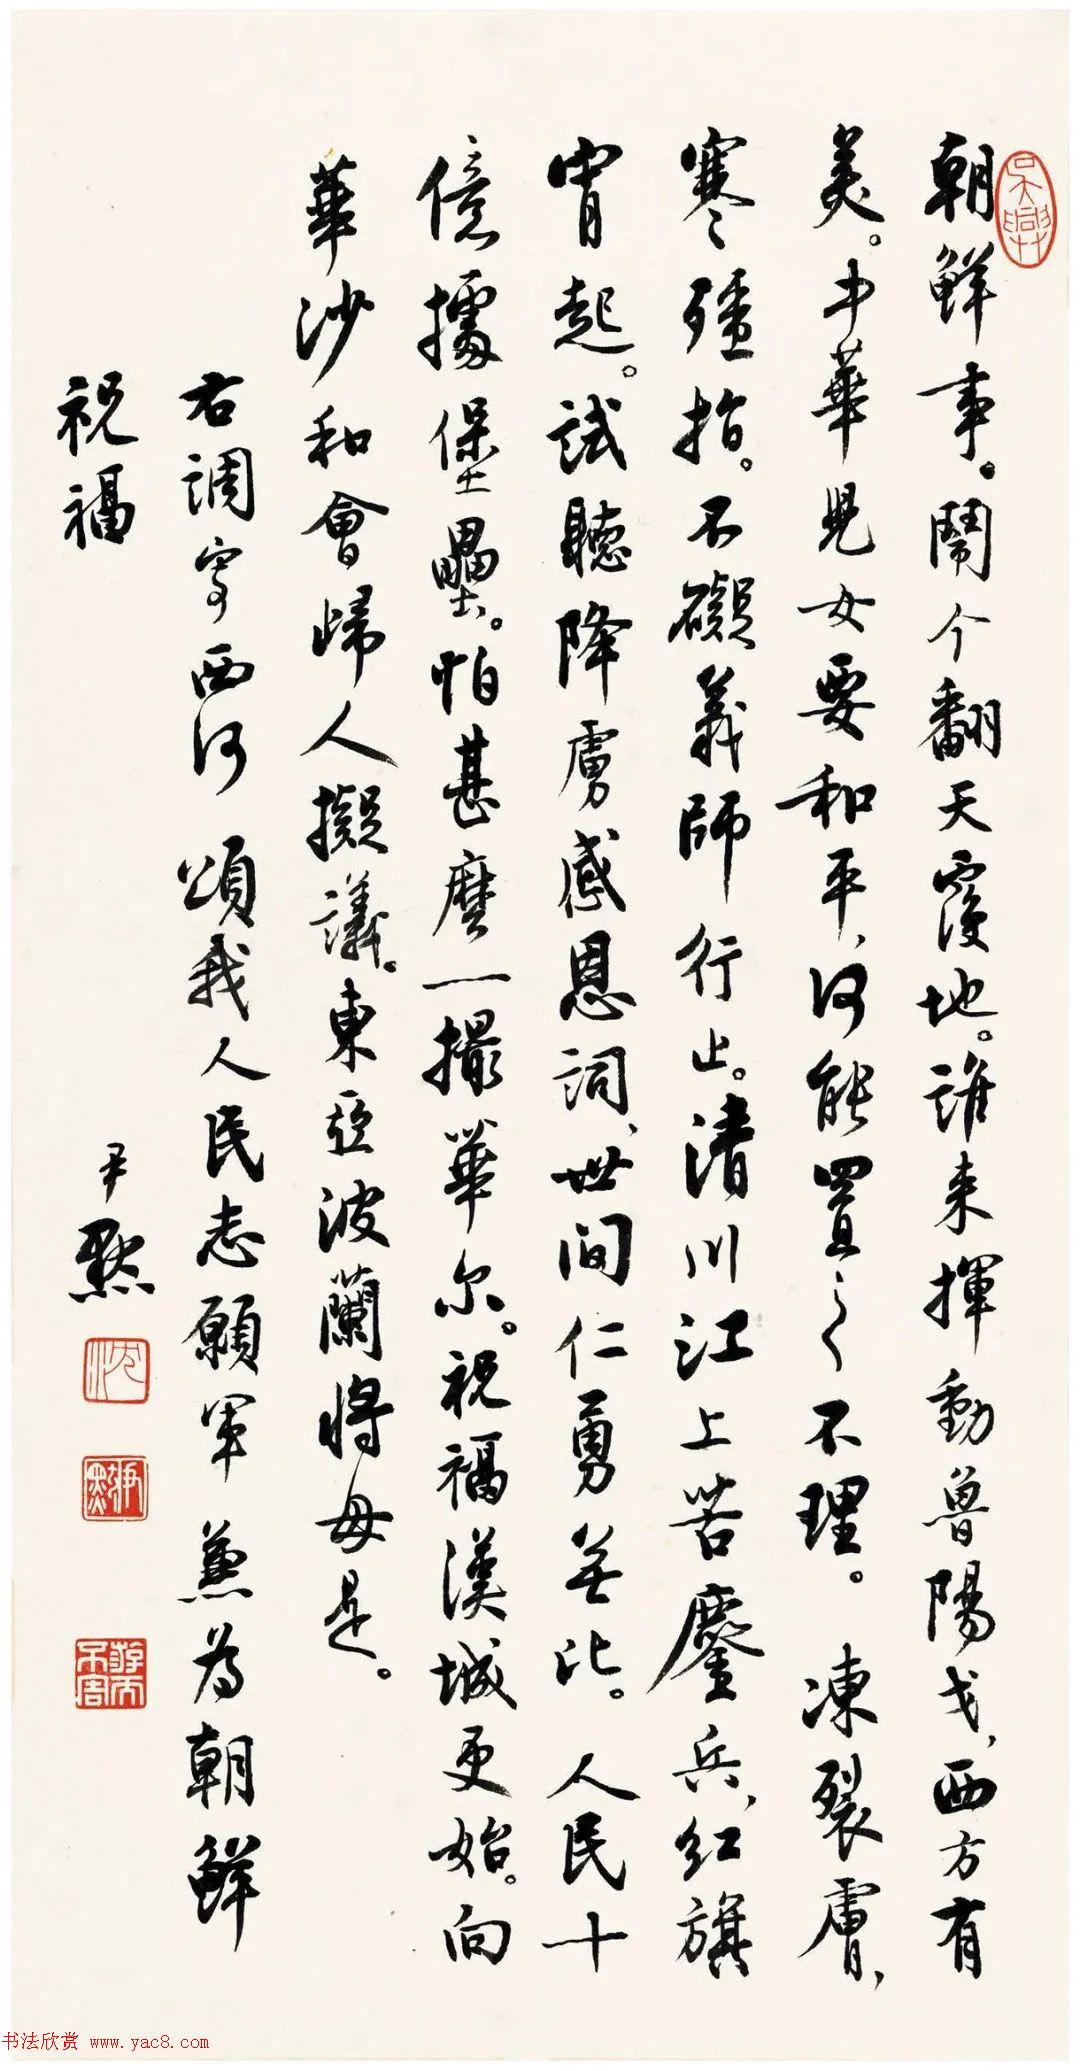 朝鮮事。鬧个翻天覆地。誰来揮動魯陽戈、西方有
美。中華児女要和平、何能置之不理。凍裂膚、
寒殭指。不礙義師行止。清川江上苦鏖兵、紅旗
宵起。試聽降虜感恩詞、世间仁勇無比。人民十
億據堡壘。怕甚麼一撮華尔。祝福漢城更始。向
華沙和會歸人擬議。東亞波蘭将毋是。
右調寄西河 頌我人民志願軍 兼為朝鮮
祝福
尹默
吳興
沈
尹默
书法欣赏 www.yac8.com